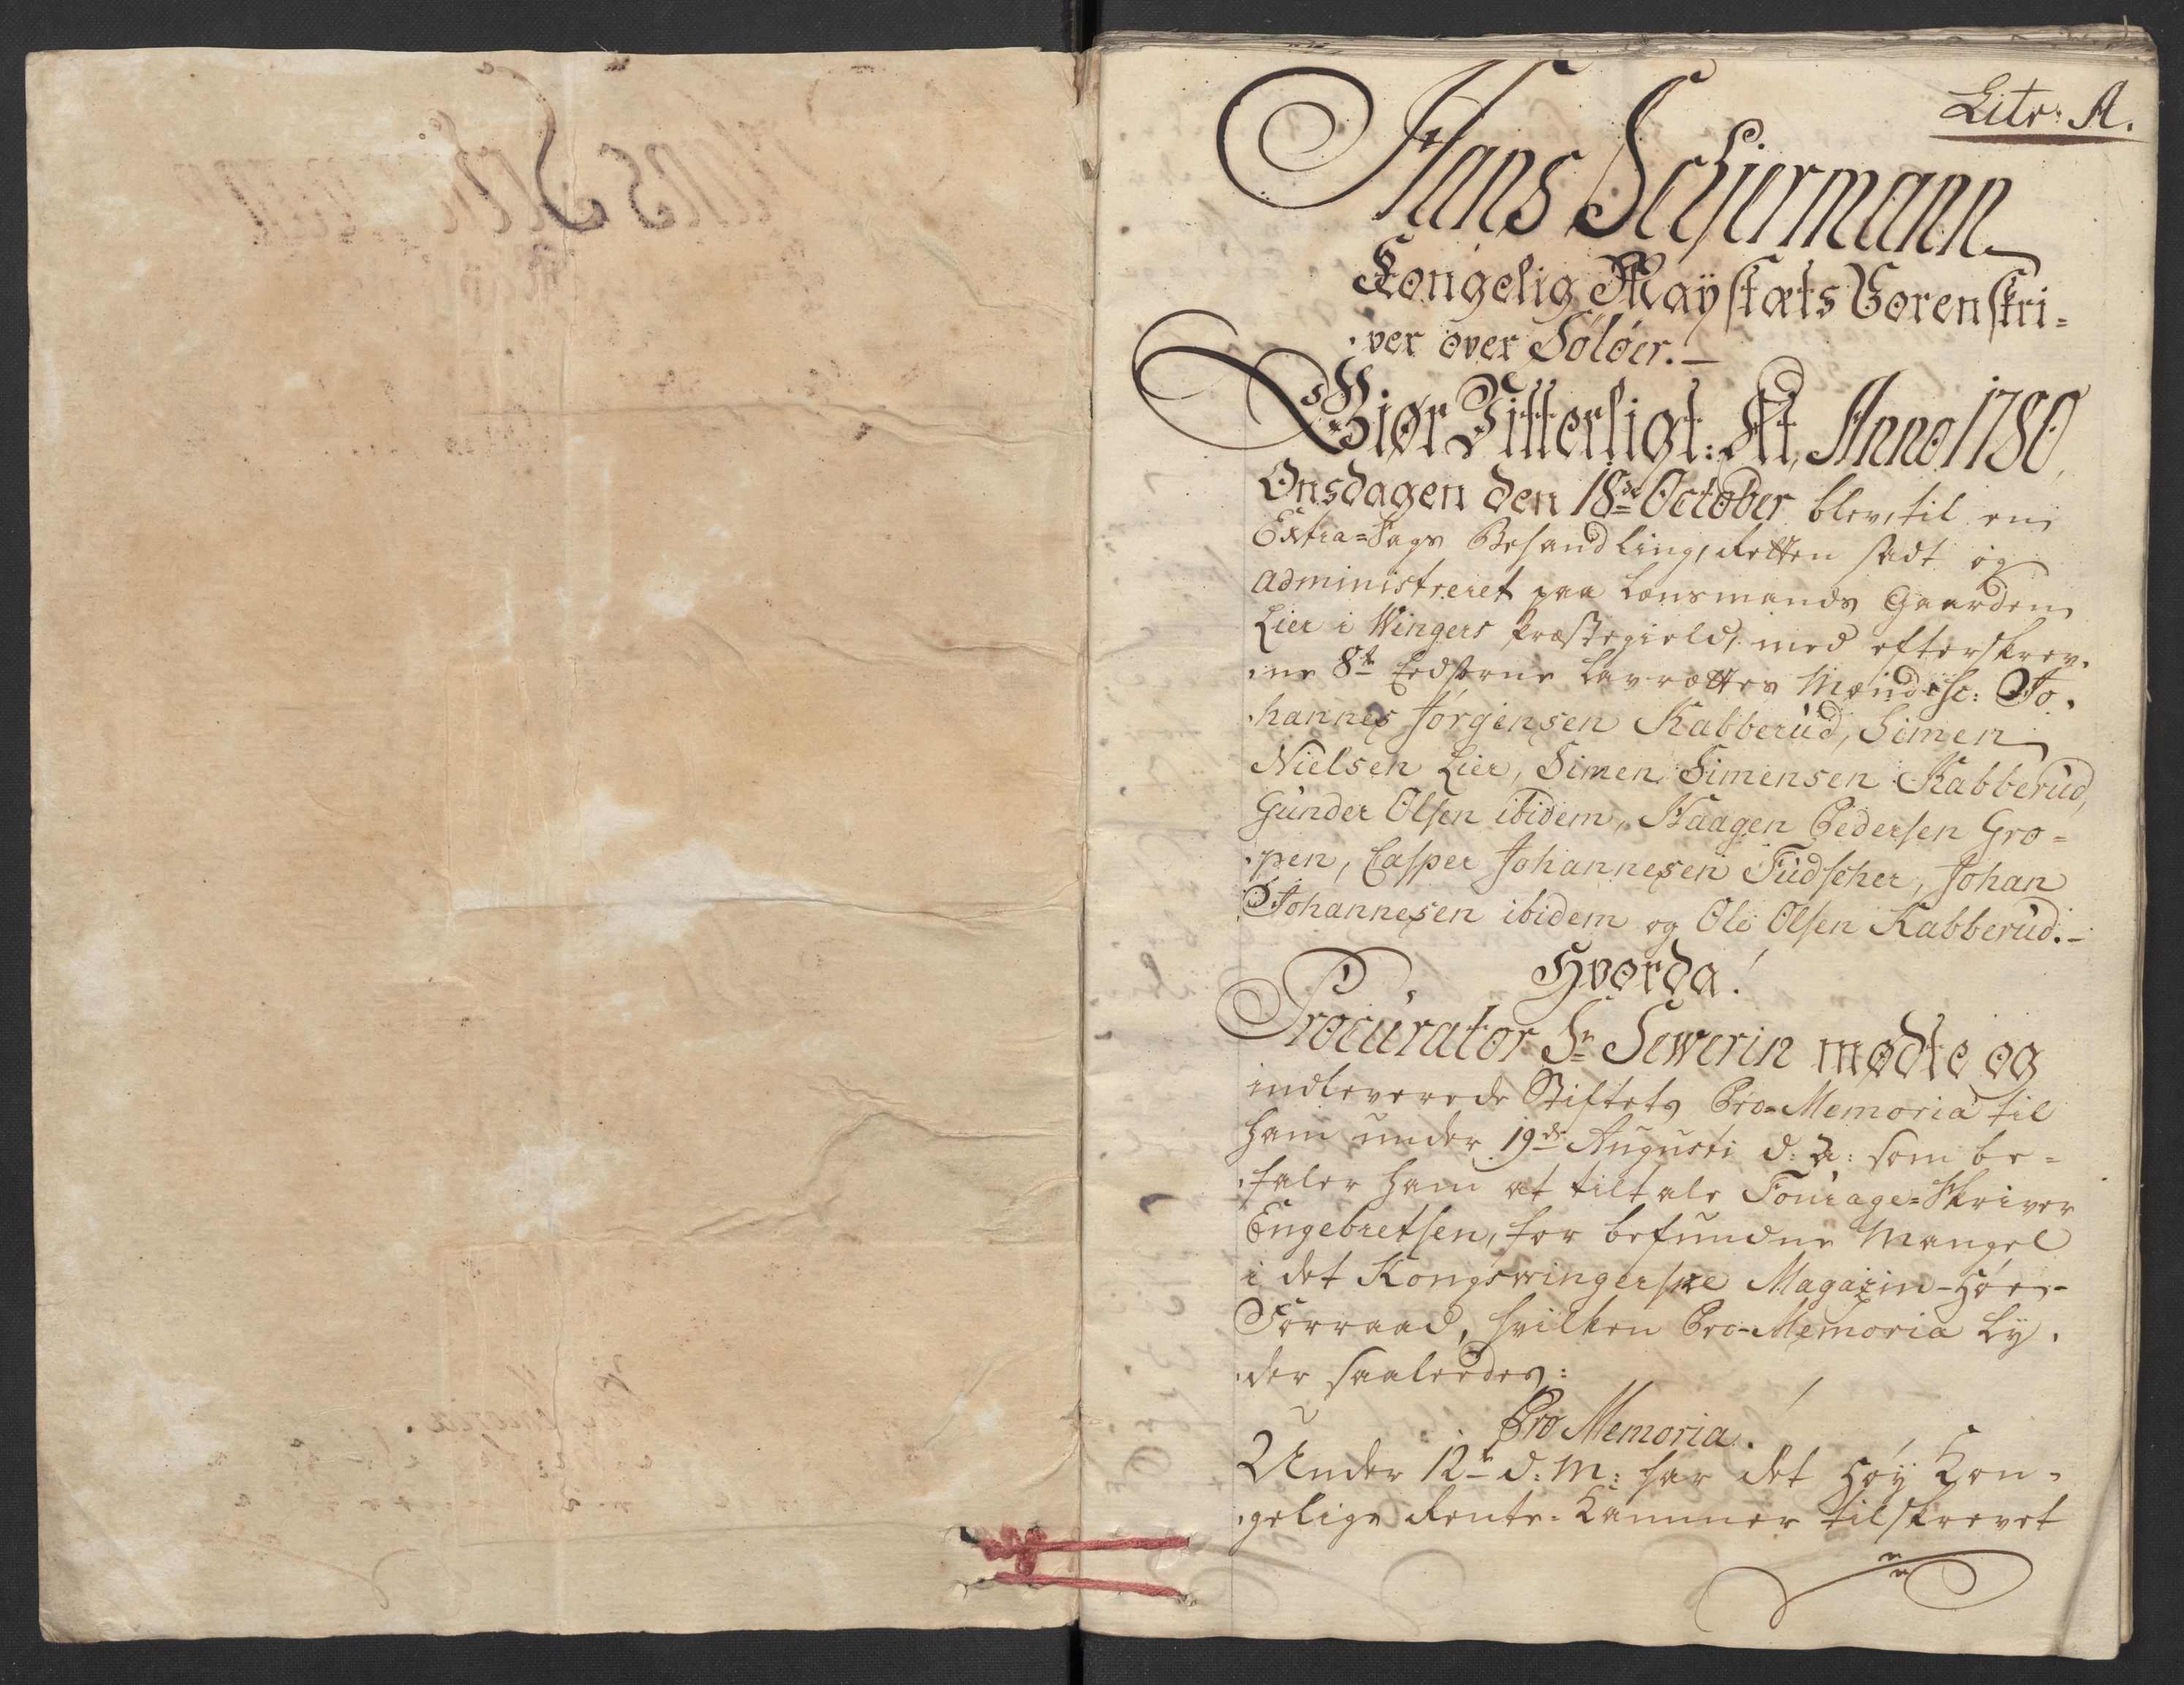 Litr: A.
Hans Schiermann
Kongelig Maÿstæts Sorenskri=
ver over Solöer.
Giør Vitterligt: At, Anno 1780,
Onsdagen den 18de October blev, til en
Extra=Sags Behandling, Retten sadt og
administreret paa Lensmands Gaarden
Lier i Wingers Præstegield, med efterskrev-
ne 8te Eedsorne Laugrettes Mænd sc: Jo-
hannes Jörgensen Kabberud, Simen
Nielsen Lier, Simen Simensen Kabberud,
Gunder Olsen ibidem, Haagen Pedersen Gro=
pen, Casper Johannesen Tudscher, Johan
Johannesen ibidem og Ole Olsen Kabberud.-
Hvorda!
Procurator Sr Sewerin mødte og
indleverede Stiftets Pro-Memoria til
ham under 19de Augusti d: a: som be=
faler ham at tiltale Fourage=Skriver
Engebretsen, for befundne Mangel
i det Kongswingerske Magazin-Höe-
Forraad, hvilken Pro-Memoria ly-
der saaleedes:
Pro Memoria!
Under 12te d: M: har det Höÿ Kon-
gelige Rente-Kammer tilskrevet